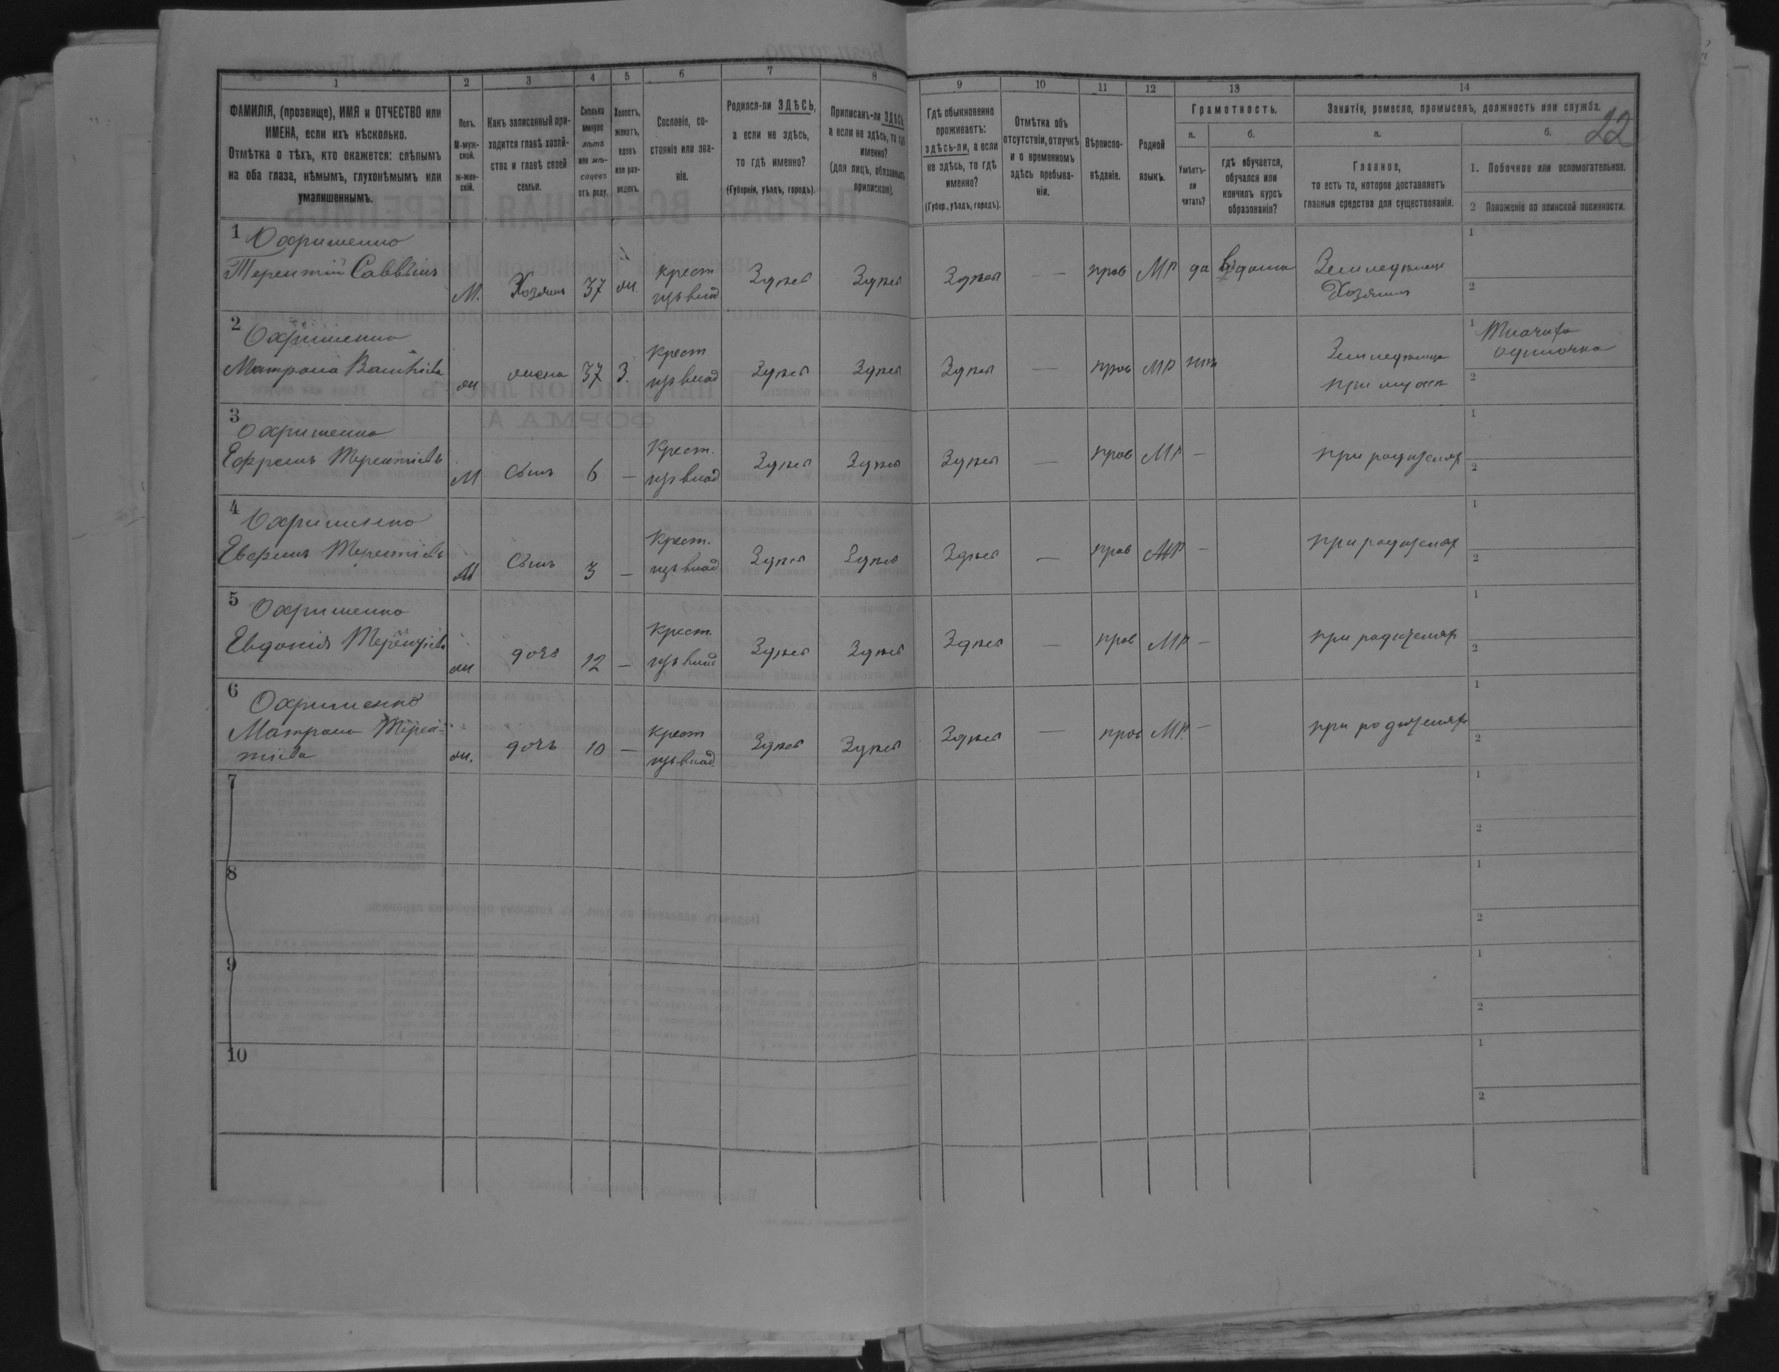 22
1 2 3 4 5 6 7 8 9 10 11 12 13 14
ФАМИЛІЯ, (прозвище), ИМЯ и ОТЧЕСТВО или
ИМЕНА, если ихъ нѣсколько.
Отмѣтка о тѣхъ, кто окажется: слѣпымъ
на оба глаза, нѣмымъ, глухонѣмымъ или
умалишеннымъ.
Полъ.
М-муж-
ской.
ж-жен-
скій.
Какъ записанный при-
ходится главѣ хозяй-
ства и главѣ своей
семьи.
Сколько
минуло
лѣтъ
или мѣ-
сяцевъ
отъ роду.
Холостъ,
женатъ,
вдовъ
или раз-
веденъ.
Сословіе, со-
стояніе или зва-
ніе.
Родился-ли ЗДѢСЬ,
а если не здѣсь,
то гдѣ именно?
(Губернія, уѣздъ, городъ).
Приписанъ-ли ЗДѢСЬ,
а если не здѣсь, то гдѣ
именно?
(для лицъ, обязанныхъ
припискою).
Гдѣ обыкновенно
проживаетъ:
здѣсь-ли, а если
не здѣсь, то гдѣ
именно?
(Губер., уѣздъ, городъ).
Отмѣтка объ
отсутствіи, отлучкѣ
и о временномъ
здѣсь пребыва-
ніи.
Вѣроиспо-
вѣданіе.
Родной
языкъ.
Грамотность.
а. б.
Умѣетъ-
ли
читать?
гдѣ обучается,
обучался или
кончилъ курсъ
образованія?
Занятія, ремесло, промыселъ, должность или служба.
а. б.
Главное,
то есть то, которое доставляетъ
главныя средства для существованія.
1. Побочное или вспомогательное.
2 Положеніе по воинской повинности.
1 Охрименко
Терентій Саввинъ М. Хозяинъ 37 ж. крест изъ влад Здѣсь Здѣсь Здѣсь — — прав МР да дома Земледѣлец
Хозяин
1
2
2 Охрименко
Матрона ж жена 37 З. Крест изъ влад Здѣсь Здѣсь Здѣсь — прав МР нѣтъ Земледѣлица
при мужѣ
1 Ткачиха
одиночка
2
3 Охрименко
Ефремъ Терентіевъ М Сынъ 6 — Крест. изъ влад Здѣсь Здѣсь Здѣсь — прав МР — при родителях
1
2
4 Охрименко
Терентіевъ М Сынъ 3 — Крест. изъ влад Здѣсь Здѣсь Здѣсь — прав МР — при родителях
1
2
5 Охрименко
Евдокія Терентіева ж дочь 12 — Крест. изъ влад Здѣсь Здѣсь Здѣсь — прав МР — при родителях
1
2
6 Охрименко
Матрона Терен-
тіева ж. дочь 10 — Крест изъ влад Здѣсь Здѣсь Здѣсь — прав МР. — при родителях
1
2
7
1
2
8
1
2
9
1
2
10
1
2